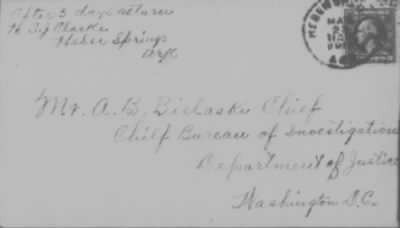 After 5 days return
to T.J. Clark
Heber Springs
Ark
HEBER
Mr. A. B. Bielaski Chief
Chief Bureau of Investigation
Department of Justice
Washington D.C.